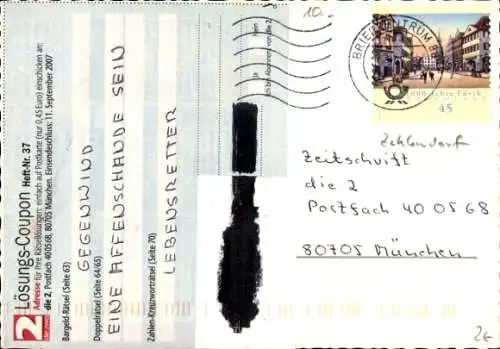 2
Lösungs-Coupon Heft-Nr. 37
Adresse für Ihre Rätsellösungen: einfach auf Postkarte (nur 0,45 Euro) einschicken an:
die 2, Postfach 400568, 80705 München. Einsendeschluss: 11. September 2007
Bargeld-Rätsel (Seite 63)
GEGENWIND
Doppelrätsel (Seite 64/65)
EINE AFFENSCHANDE SEIN
Zahlen-Kreuzworträtsel (Seite 70)
LEBENSRETTER
10.
BRIEFZENTRUM 8
1000 Jahre Fürth
45
Zehlendorf
Zeitschrift
die 2
Postfach 40 05 68
80705 München
2€